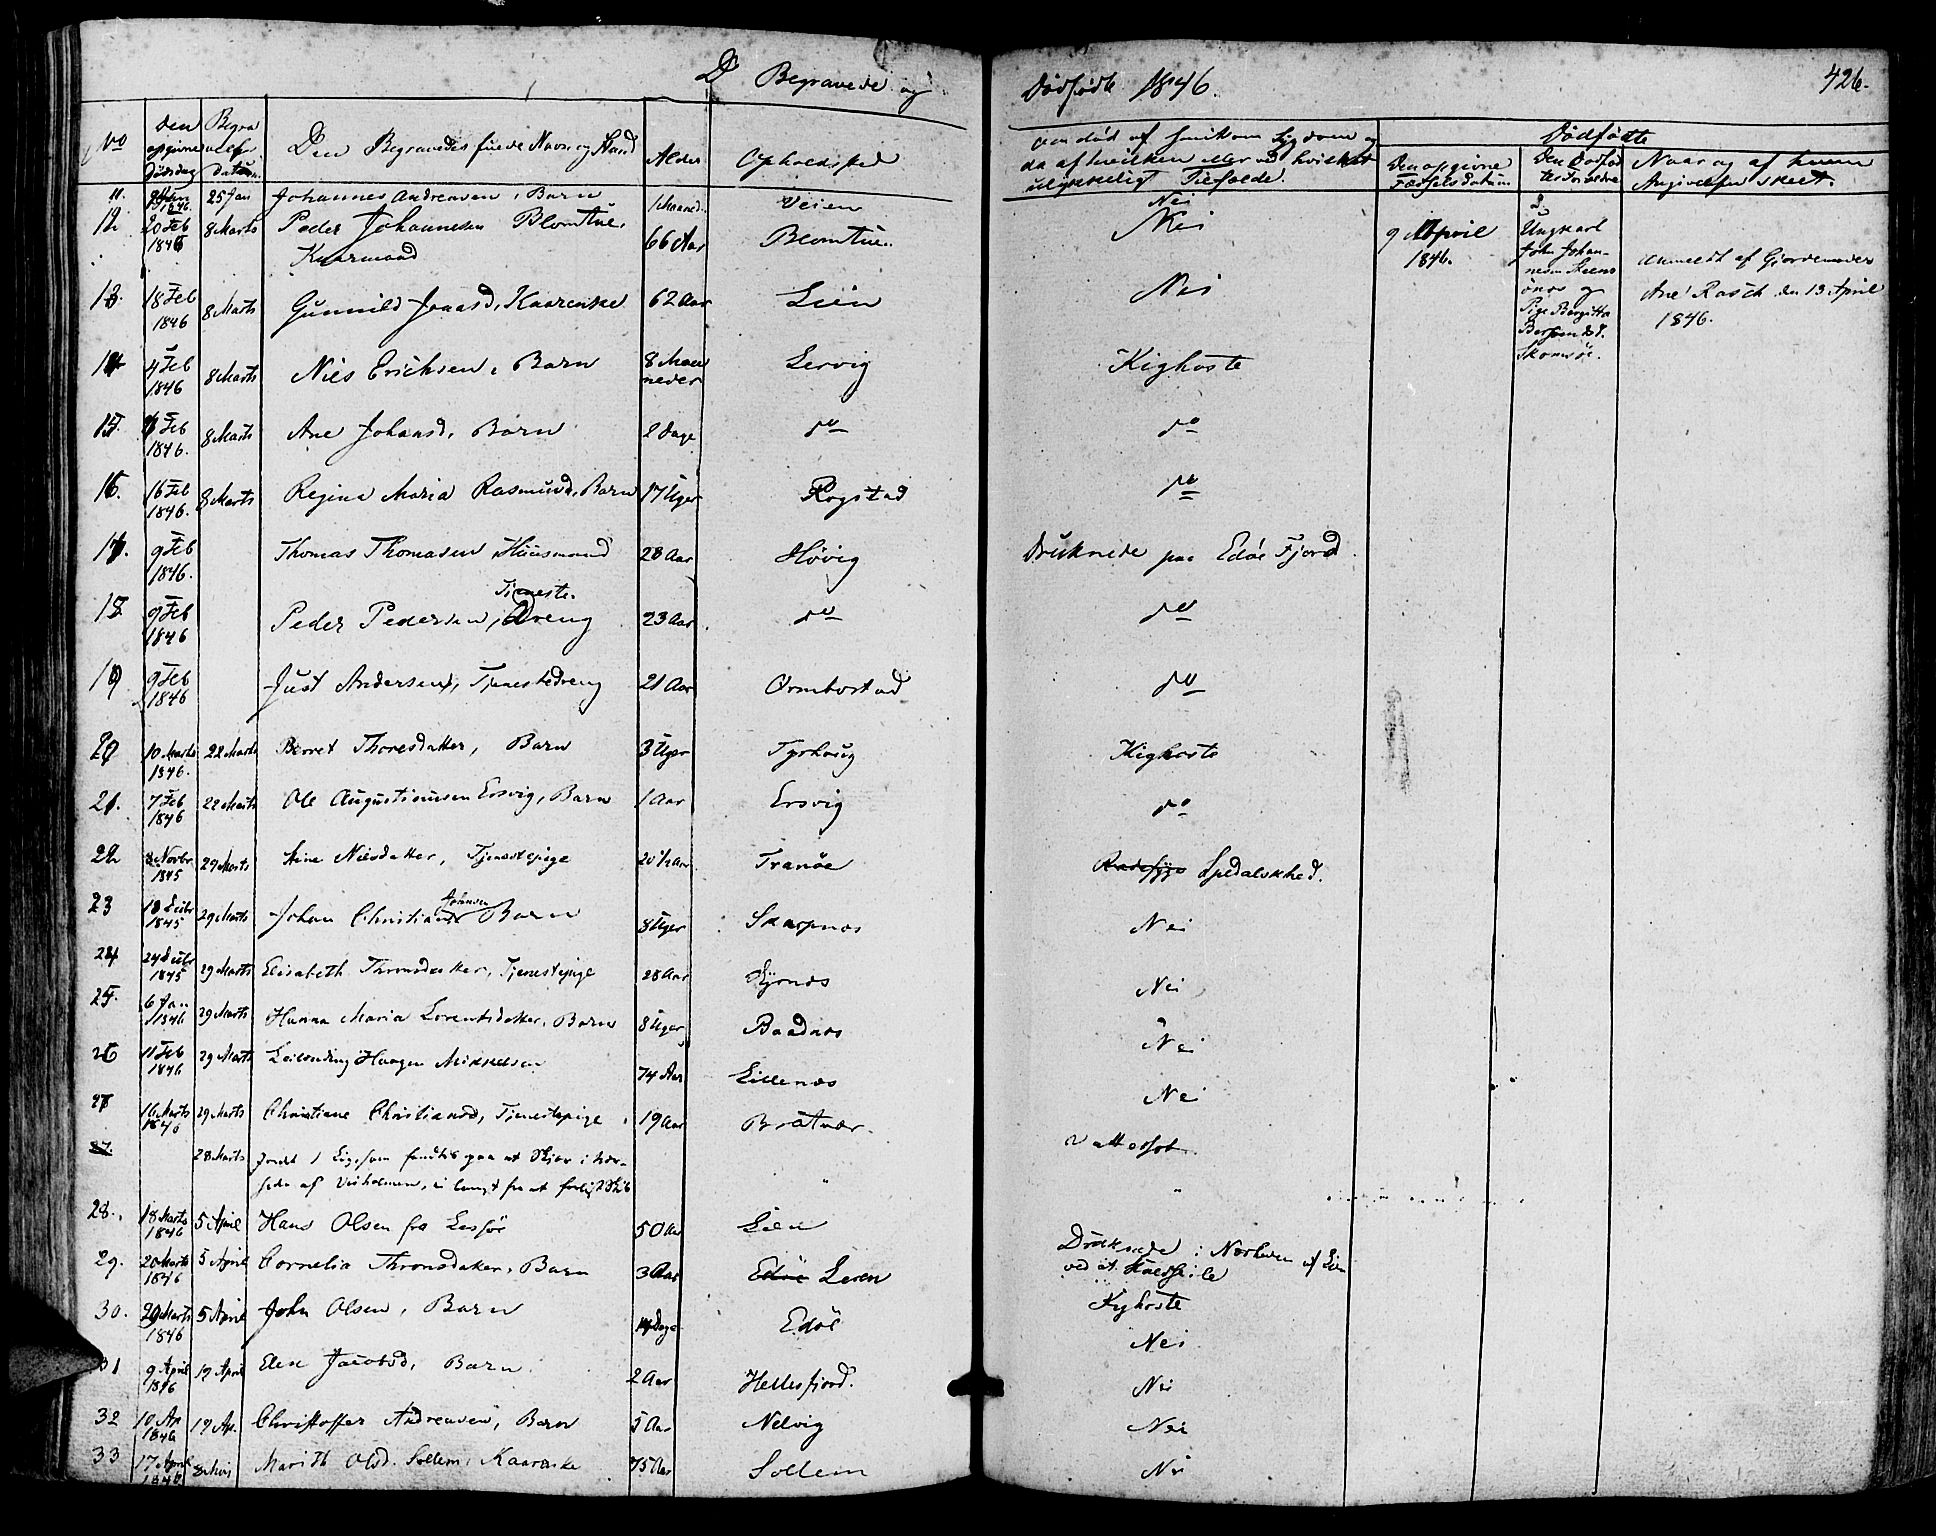 D Begravede og Dødfødte 1846. 426.
No
den opgivne Dødsdag
Begravelses datum.
Den Begravedes fulde Navn og Stand
Alder
Opholdssted
om død af smitsom Sygdom og
da af hvilken eller ved hvilket
ulykkeligt Tilfælde.
Dødfødte
Den opgivne Fødselsdatum
Den Dødfødtes Forældre
Naar og af hvem
Angivelsen skeet.
11. 1846. 25 Jan Johannes Andreasen, Barn 1 Maaned Veien Nei
12 20 Feb 1846 8 Marts Peder Johannesen Blomtue. Kaarmand 66 Aar Blomtue. Nei
9 April 1846.
2.
Ungkarl
John Johan-
nesen Steens-
önes og
Pige Bergitta
Berginsd.
Skomsöe.
Anmeldt af Gjordemoder
Ane Rasch den 13 April
1846.
13. 18 Feb 1846 8 Marts Gunnild Jonasd, Kaarenke 62 Aar Lien Nei
14 4 Feb 1846 8 Marts Niels Erichsen, Barn 8 Maaneder Lervig Kighoste
15. 6 Feb 1846. 8 Marts Ane Johansd, Barn 2 Dage do do
16. 16 Feb 1846. 8 Marts Regina Maria Rasmusd, Barn 17 Uger Rogstad do
17. 9 Feb 1846. Thomas Thomasen, Huusmand 28 Aar Høvig Druknede paa Edøe Fjord
18 9 Feb 1846 Peder Pedersen, Tjeneste Dreng 23 Aar do do
19 9 Feb 1846 Just Andersen, Tjenestedreng 21 Aar Ormbostad do
20 10 Marts 1846. 22 Marts Berret Thoresdatter, Barn 3 Uger Tyrhoug Kighoste
21. 7 Feb 1846 22 Marts Ole Augustinusen Ersvig, Barn 1 Aar Ersvig do
22 Novbr. 1845 29 Marts Nielsdatter, Tjenestepige 20 1/2 Aar Tranöe Radesyge Spedalskhed.
23 18 Decbr 1845 29 Marts Johan Christian Johansen Barn 8 Uger Skarpnes Nei
24 24 Decbr 1845 29 Marts Elisabeth Thronsdatter, Tjenestepige 28 Aar Kyrnes Nei
25. 6 Jan. 1846 29 Marts Hanna Maria Lorentsdatter, Barn 8 Uger Baadnes Nei
26 11 Feb 1846 29 Marts Leilending Haagen Mikkelsen 74 Aar Lillenes Nei
27 16 Marts 1846 29 Marts Christiane Christiansd, Tjenestepige 19 Aar Bratvær. Vattersot
27. 28 Marts Jordet 1 Lig, som fandtes paa et Skjær i Nær-
heden af Veiholmen, ei langt fra et forlist Skib " "
28. 18 Marts 1846 5 April Hans Olsen fra 50 Aar Lien Druknede i Nærheden af Lien
ved et Kuldseile
29. 20 Marts 1846 5 April Cornelia Thronsdatter, Barn 3 Aar Edöe Leren Kighoste
30. 20 Marts 1846 5 April John Olsen, Barn 14 Dage Edöe Nei
31 9 April 1846 19 April Elen Jacobsd, Barn 2 Aar Hellesfjord. Nei
32 10 Ap 1846 19 Ap. Christoffer Andreasen, Barn 5 Aar Nelvig Nei
33 17 April 1846 Marith Olsd. Sollem, Kaarenke 75 Aar Sollem Nei